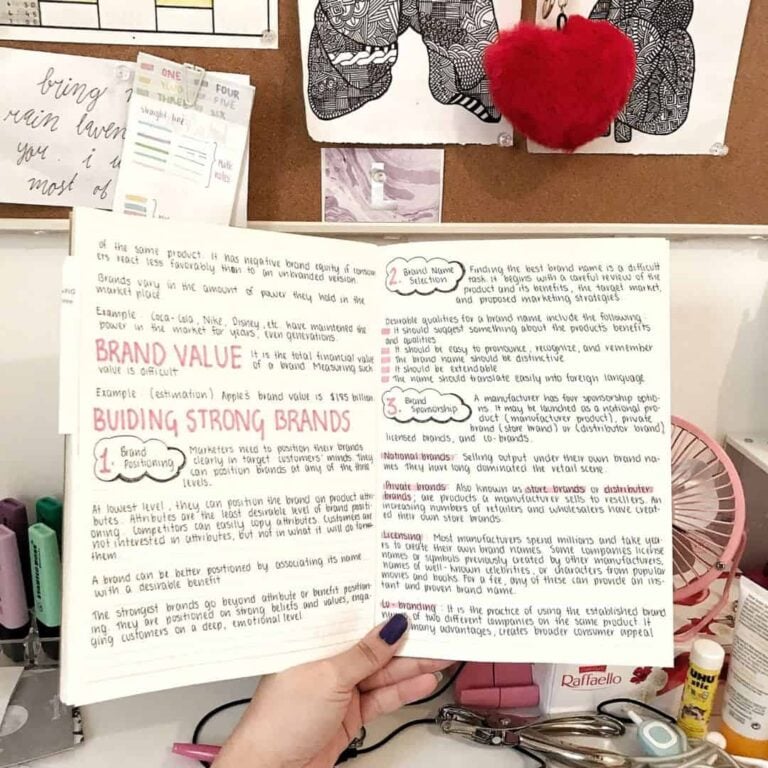 bring
rain laven
you. i w
most of
ONE
TWO
THREE
FOUR
FIVE
SIX
straight line
Math
notes
of the same product. It has negative brand equity if consum
ers react less favorably than to an unbranded version.
Brands vary in the amount of power they hold in the
market place
Example : Coca-Cola, Nike, Disney, etc. have maintained the
power in the market for years, even generations.
BRAND VALUE It is the total financial value
of a brand. Measuring such
value is difficult
Example : (estimation) Apple's brand value is $185 billion
BUIDING STRONG BRANDS
1. Brand
Positioning
Marketers need to position their brands
clearly in target customers' minds. They
can position brands at any of the three
levels.
At lowest level, they can position the brand on product attri-
butes. Attributes are the least desirable level of brand positi-
oning. Competitors can easily copy attributes. Customers are
not interested in attributes, but not in what it will do for
them.
A brand can be better positioned by associating its name
with a desirable benefit
The strongest brands go beyond attribute or benefit position-
ing. They are positioned on strong beliefs and values, enga-
ging customers on a deep, emotional level
2. Brand Name
Selection
Finding the best brand name is a difficult
task. It begins with a careful review of the
product and its benefits, the target market,
and proposed marketing strategies
Desirable qualities for a brand name include the following :
It should suggest something about the products benefits
and qualities
It should be easy to pronounce, recognize, and remember
The brand name should be distinctive
It should be extendable
The name should translate easily into foreign language
3. Brand
Sponsorship
A manufacturer has four sponsorship optio-
ns. It may be launched as a national pro-
duct (manufacturer product), private
brand (store brand) or (distributor brand),
licensed brands, and co-brands.
National brands : Selling output under their own brand na-
mes they have long dominated the retail scene.
Private brands : Also known as store brands or distributer
brands, are products a manufacturer sells to resellers. An
increasing numbers of retailers and wholesalers have creat-
ed their own store brands.
Licensing : Most manufacturers spend millions and take yea-
rs to create their own brand names. Some companies license
names or symbols previously created by other manufacturers,
names of well-known celebrities, or characters from popular
movies and books. For a fee, any of these can provide an ins-
tant and proven brand name.
Co-branding : It is the practice of using the established brand
names of two different companies on the same product. It
many advantages, creates broader consumer appeal
Raffaello
UHU
stic